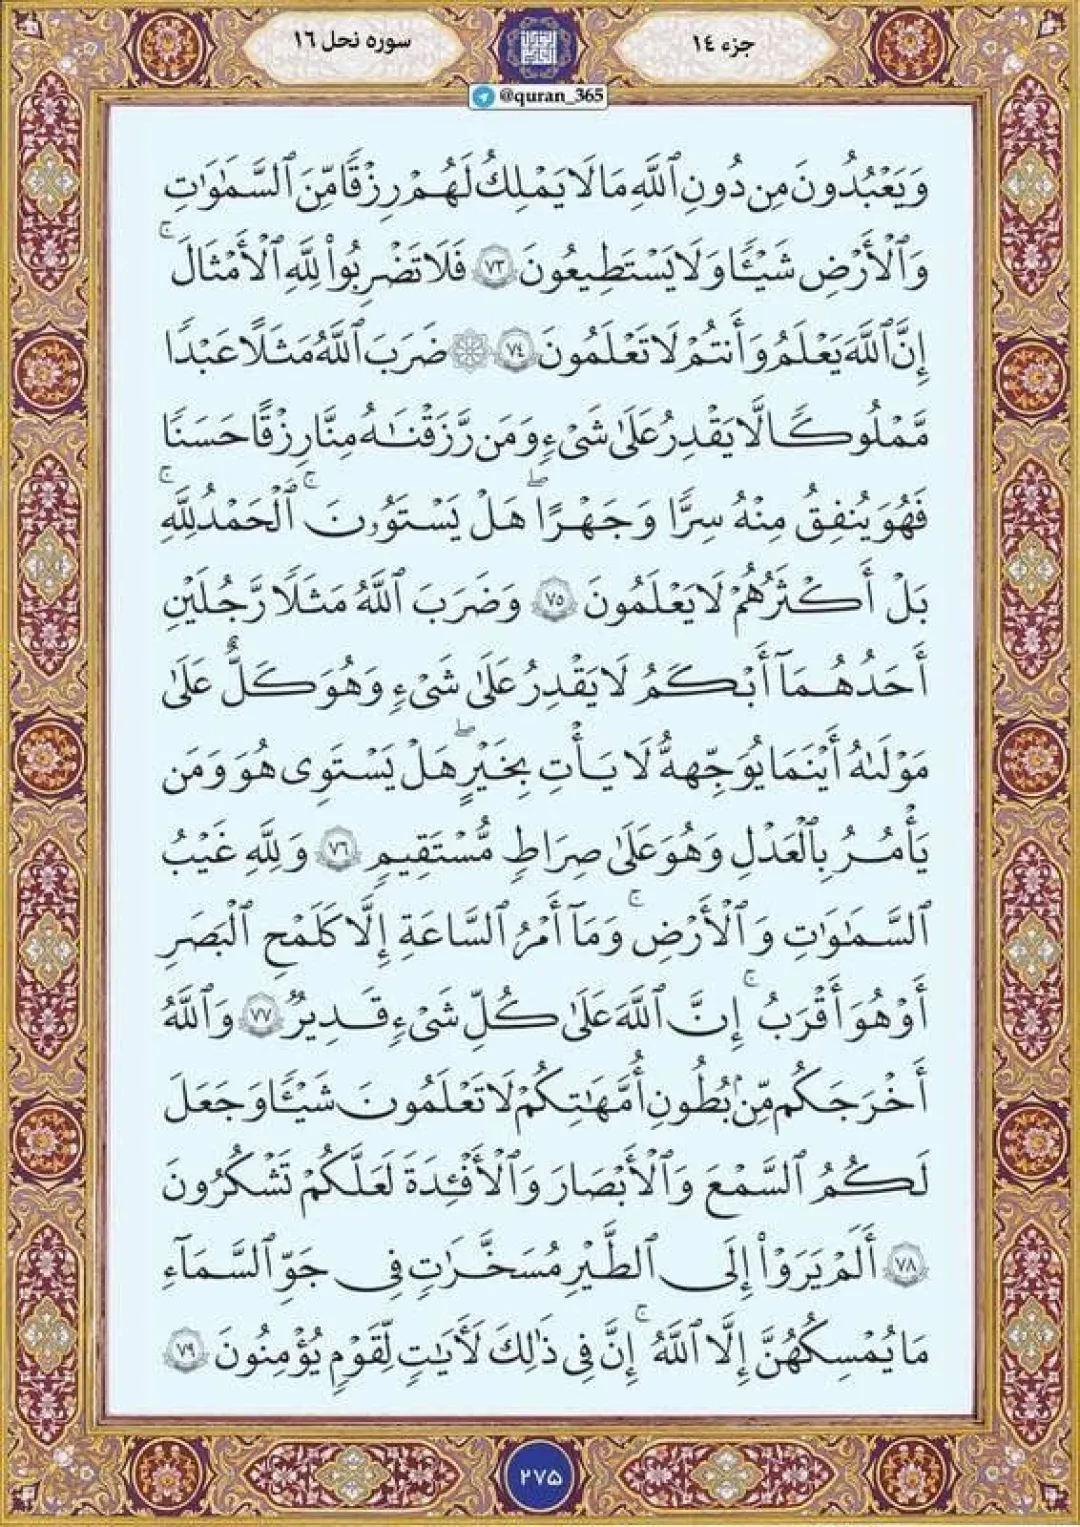 سوره نحل ١٦
جزء ١٤
@quran_365
وَيَعْبُدُونَ مِن دُونِ ٱللَّهِ مَا لَا يَمْلِكُ لَهُمْ رِزْقًا مِّنَ ٱلسَّمَٰوَٰتِ
وَٱلْأَرْضِ شَيْـًٔا وَلَا يَسْتَطِيعُونَ ٧٣ فَلَا تَضْرِبُوا۟ لِلَّهِ ٱلْأَمْثَالَ ۚ
إِنَّ ٱللَّهَ يَعْلَمُ وَأَنتُمْ لَا تَعْلَمُونَ ٧٤ ۞ ضَرَبَ ٱللَّهُ مَثَلًا عَبْدًا
مَّمْلُوكًا لَّا يَقْدِرُ عَلَىٰ شَىْءٍ وَمَن رَّزَقْنَٰهُ مِنَّا رِزْقًا حَسَنًا
فَهُوَ يُنفِقُ مِنْهُ سِرًّا وَجَهْرًا ۖ هَلْ يَسْتَوُۥنَ ۚ ٱلْحَمْدُ لِلَّهِ ۚ
بَلْ أَكْثَرُهُمْ لَا يَعْلَمُونَ ٧٥ وَضَرَبَ ٱللَّهُ مَثَلًا رَّجُلَيْنِ
أَحَدُهُمَآ أَبْكَمُ لَا يَقْدِرُ عَلَىٰ شَىْءٍ وَهُوَ كَلٌّ عَلَىٰ
مَوْلَىٰهُ أَيْنَمَا يُوَجِّههُّ لَا يَأْتِ بِخَيْرٍ ۖ هَلْ يَسْتَوِى هُوَ وَمَن
يَأْمُرُ بِٱلْعَدْلِ وَهُوَ عَلَىٰ صِرَاطٍ مُّسْتَقِيمٍ ٧٦ وَلِلَّهِ غَيْبُ
ٱلسَّمَٰوَٰتِ وَٱلْأَرْضِ ۚ وَمَآ أَمْرُ ٱلسَّاعَةِ إِلَّا كَلَمْحِ ٱلْبَصَرِ
أَوْ هُوَ أَقْرَبُ ۚ إِنَّ ٱللَّهَ عَلَىٰ كُلِّ شَىْءٍ قَدِيرٌ ٧٧ وَٱللَّهُ
أَخْرَجَكُم مِّنۢ بُطُونِ أُمَّهَٰتِكُمْ لَا تَعْلَمُونَ شَيْـًٔا وَجَعَلَ
لَكُمُ ٱلسَّمْعَ وَٱلْأَبْصَٰرَ وَٱلْأَفْـِٔدَةَ لَعَلَّكُمْ تَشْكُرُونَ
٧٨ أَلَمْ يَرَوْا۟ إِلَى ٱلطَّيْرِ مُسَخَّرَٰتٍ فِى جَوِّ ٱلسَّمَآءِ
مَا يُمْسِكُهُنَّ إِلَّا ٱللَّهُ ۚ إِنَّ فِى ذَٰلِكَ لَـَٔايَٰتٍ لِّقَوْمٍ يُؤْمِنُونَ ٧٩
٢٧۵